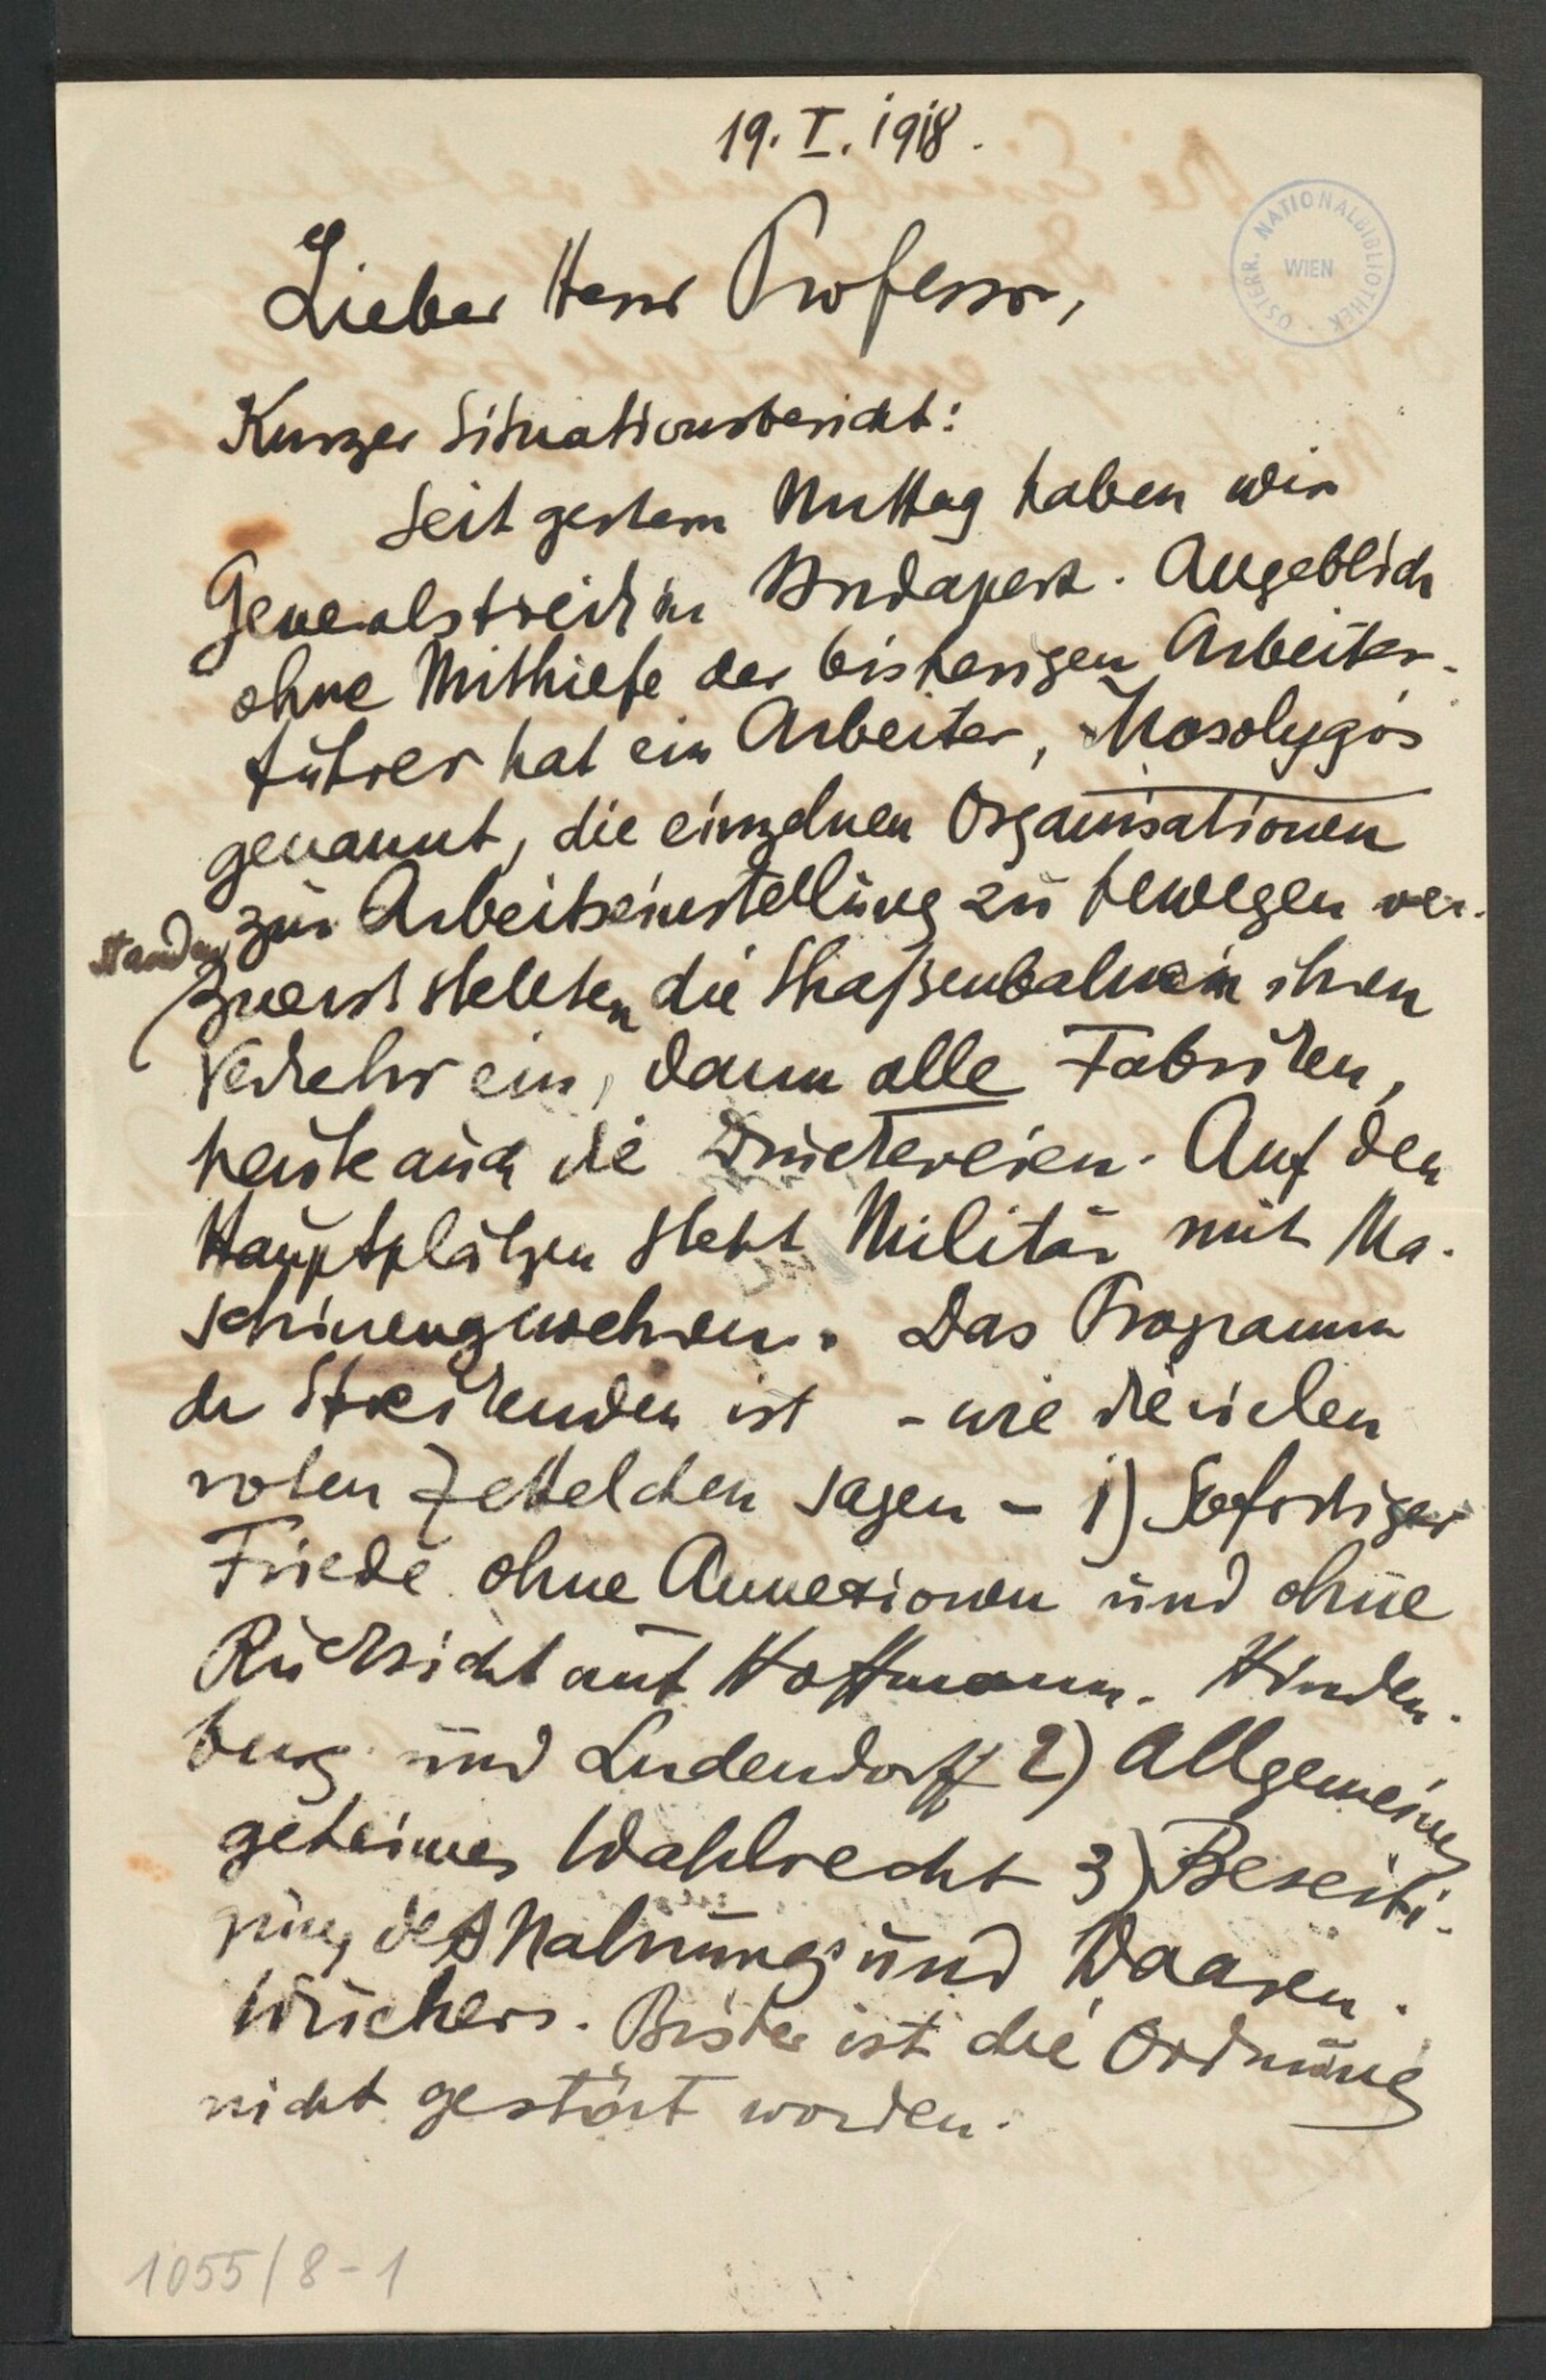 19. I. 1918.
ÖSTERR. NATIONALBIBLIOTHEK
WIEN
Lieber Herr Professor,
Kurzer Situationsbericht:
Seit gestern Mittag haben wir
Generalstreik in Budapest. Angeblich
ohne Mithiefe der bisherigen Arbeiter-
führer hat ein Arbeiter, Mosolygós
genannt, die einzelnen Organisationen
zur Arbeitseinstellung zu bewegen ver-
standen
Zuerst stellten die Straßenbahnen ihren
Verkehr ein, dann alle Fabriken,
heute auch die Druckereien. Auf den
Hauptplätzen steht Militär mit Ma-
schinengewehren. Das Programm
der Streikenden ist - wie die vielen
roten Zettelchen sagen - 1) Sofortiger
Friede ohne Annexionen und ohne
Rücksicht auf Hoffmann. Hinden-
burg und Ludendorff 2) Allgemeines
geheimes Wahlrecht 3) Beseiti-
gung des Nahrungs und Waaren-
wuchers. Bisher ist die Ordnung
nicht gestört worden.
1055/8-1